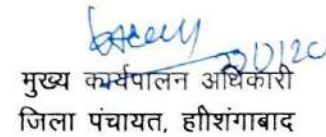 मुख्य कार्यपालन अधिकारी
जिला पंचायत, हाेशंगाबाद